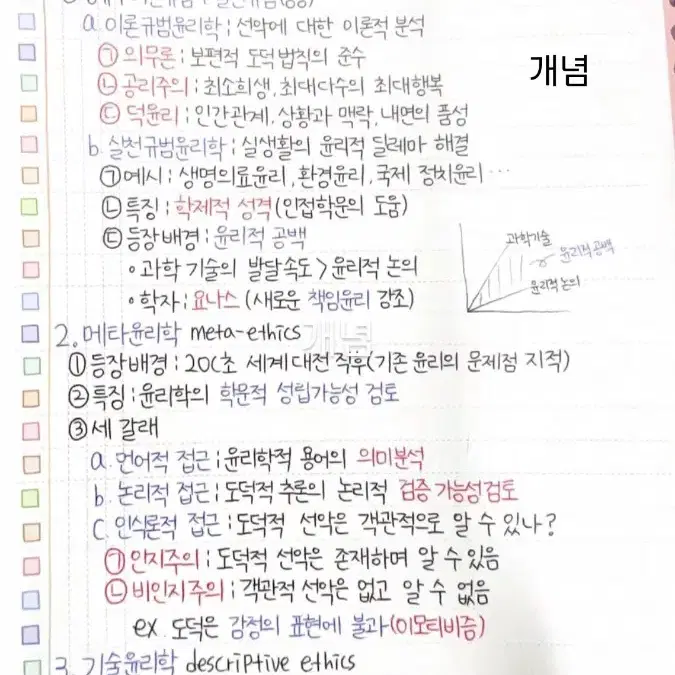 a. 이론규범윤리학 ; 선악에 대한 이론적 분석
㉠ 의무론 ; 보편적 도덕법칙의 준수
개념
㉡ 공리주의 ; 최소희생, 최대다수의 최대행복
㉢ 덕윤리 ; 인간관계, 상황과 맥락, 내면의 품성
b. 실천규범윤리학 ; 실생활의 윤리적 딜레마 해결
㉠ 예시 ; 생명의료윤리, 환경윤리, 국제 정치윤리 …
㉡ 특징 ; 학제적 성격(인접학문의 도움)
㉢ 등장배경 ; 윤리적 공백
• 과학 기술의 발달속도 > 윤리적 논의
• 학자 ; 요나스 (새로운 책임윤리 강조)
과학기술
윤리적공백
윤리적 논의
2. 메타윤리학 meta-ethics
개념
① 등장배경 ; 20C초 세계대전 직후(기존 윤리의 문제점 지적)
② 특징 ; 윤리학의 학문적 성립가능성 검토
③ 세 갈래
a. 언어적 접근 ; 윤리학적 용어의 의미분석
b. 논리적 접근 ; 도덕적 추론의 논리적 검증 가능성 검토
C. 인식론적 접근 ; 도덕적 선악은 객관적으로 알 수 있나?
㉠ 인지주의 ; 도덕적 선악은 존재하며 알 수 있음
㉡ 비인지주의 ; 객관적 선악은 없고 알 수 없음
ex. 도덕은 감정의 표현에 불과(이모티비즘)
3. 기술윤리학 descriptive ethics